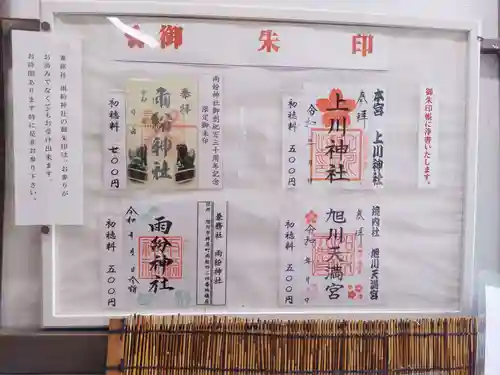 御朱印
兼務社 雨紛神社の御朱印は、お参りが
お済みでなくてもお受け出来ます。
お時間あります時に是非お参り下さい。
雨紛神社御創祀百三十周年記念
限定御朱印
奉拝
雨紛神社
初穂料 七〇〇円
御朱印帳に浄書いたします。
本宮 上川神社
奉拝
上川神社
令和 年 月 日
初穂料 五〇〇円
兼務社 雨紛神社
雨紛神社
令和 年 月 日参拝
初穂料 五〇〇円
境内社 旭川天満宮
奉拝
旭川天満宮
令和 年 月 日
初穂料 五〇〇円